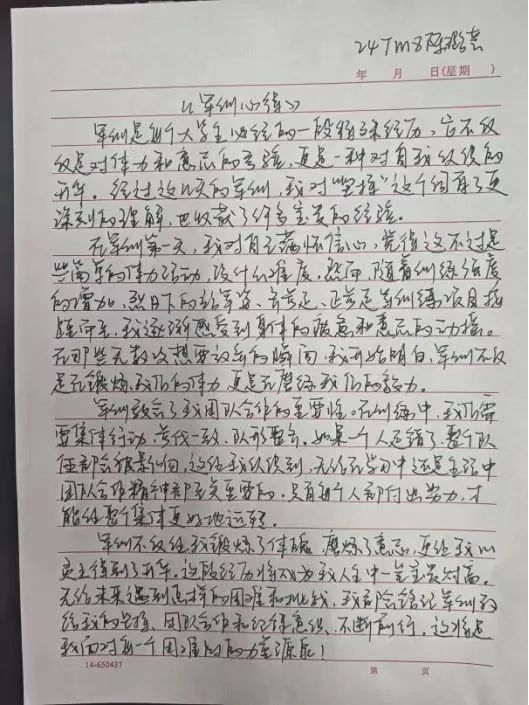 247m8陈
年 月 日(星期 )
《军训心得》
军训是每个大学生必经的一段特殊经历,它不仅
仅是对体力和意志的考验,更是一种对自我纪律的
升华。经过这几天的军训,我对“坚持”这个词有了更
深刻的理解,也收获了许多宝贵的经验。
在军训第一天,我对自己满怀信心,觉得这不过是
些简单的体力活动,没什么难度。然而,随着训练强度
的增加,烈日下的站军姿、齐步走、正步走等训练项目接
踵而至,我逐渐感受到身体的疲惫和意志的动摇。
在那些无数次想要放弃的瞬间,我开始明白,军训不仅
是在锻炼我们的体力,更是在磨练我们的毅力。
军训教会了我团队合作的重要性。在训练中,我们需
要集体行动,步伐一致,队形整齐。如果一个人走错了,整个队
伍都会被影响,这让我认识到,无论在学习中还是生活中
团队合作精神都至关重要的,只有每个人都付出努力,才
能让整个集体更好地运转。
军训不仅让我锻炼了体魄,磨炼了意志,更让我
得到了升华。这段经历将成为我人生中一笔宝贵财富。
无论未来遇到怎样的困难和挑战,我都会铭记军训教
给我的坚持、团队合作和纪律意识,不断前行。这将是
我面对每一个困难时的力量源泉!
14-650437
第 页